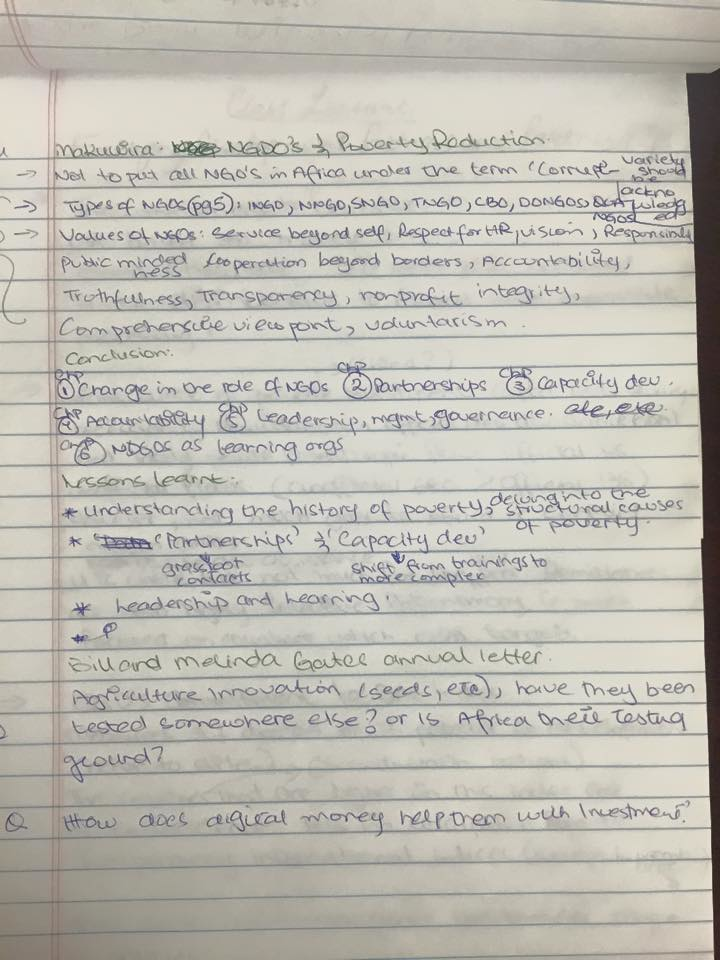 Makuwira: NGDO's & Poverty Reduction.
→ Not to put all NGO's in Africa under the term 'Corrupt' - variety should be acknowledged
→ Types of NGOs (pg5): INGO, NNGO, SNGO, TNGO, CBO, DONGOS, NGOs
→ Values of NGOs: Service beyond self, Respect for HR, vision, Responsibility
Public mindedness Cooperation beyond borders, Accountability,
Truthfulness, Transparency, nonprofit integrity,
Comprehensive viewpoint, voluntarism.
Conclusion:
Chp ① Change in the role of NGOs Chp ② Partnerships Chp ③ Capacity dev.
Chp ④ Accountability Chp ⑤ Leadership, mgmt, governance.
Chp ⑥ NDGOs as learning orgs
Lessons learnt:
* Understanding the history of poverty, delving into the structural causes of poverty.
* 'Partnerships' & 'Capacity dev'
grassroot contacts shift from trainings to more complex
* Leadership and Learning.
* P
Bill and Melinda Gates annual letter.
Agriculture Innovation (seeds, etc), have they been
tested somewhere else? or is Africa their Testing
ground?
Q How does digital money help them with Investment?